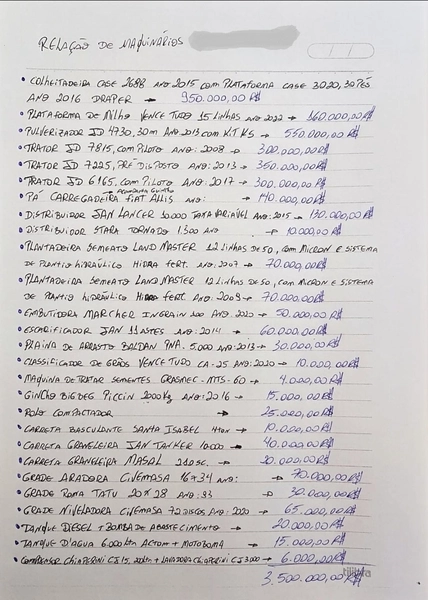 RELAÇÃO DE MAQUINÁRIOS
• COLHEITADEIRA CASE 2688 ANO 2015 COM PLATAFORMA CASE 3020, 30 PÉS
ANO 2016 DRAPER → 950.000,00 R$
• PLATAFORMA DE MILHO VENCE TUDO 15 LINHAS ANO 2022 → 160.000,00 R$
• PULVERIZADOR JD 4730, 30m ANO 2013 COM KTKS → 550.000,00 R$
• TRATOR JD 7815, COM PILOTO ANO: 2008 → 300.000,00 R$
• TRATOR JD 7225, PRÉ DISPOSTO ANO: 2013 → 350.000,00 R$
• TRATOR JD 6165, COM PILOTO ANO: 2017 → 300.000,00 R$
• PÁ CARREGADEIRA FIAT ALLIS ANO: → 140.000,00 R$
• DISTRIBUIDOR JAN LANCER 10.000 TAXA VARIÁVEL ANO: 2015 → 130.000,00 R$
• DISTRIBUIDOR STARA TORNADO 1.300 ANO → 10.000,00 R$
• PLANTADEIRA SEMEATO LAND MASTER 12 LINHAS DE 50, COM MICRON E SISTEMA
DE PLANTIO HIDRÁULICO HIDRA FERT. ANO: 2007 → 70.000,00 R$
PLANTADEIRA SEMEATO LAND MASTER 12 LINHAS DE 50, COM MICRON E SISTEMA
• DE PLANTIO HIDRÁULICO FERT. ANO: 2008 → 70.000,00 R$
• EMBUTIDORA MARCHER INGRAIN 100 ANO: 2020 → 50.000,00 R$
• ESCARIFICADOR JAN 11 ASTES ANO: 2014 → 60.000,00 R$
• PLAINA DE ARRASTO BALDAN 5.000 ANO: 2013 → 30.000,00 R$
• CLASSIFICADOR DE GRÃOS VENCE TUDO CA-25 ANO: 2020 → 10.000,00 R$
• MAQUINA DE TRATAR SEMENTES GRASMEC - MTS-60 → 4.000,00 R$
• GINCHO BIG BEG PICCIN 2000Kg ANO: 2016 → 15.000,00 R$
• ROLO COMPACTADOR → 25.000,00 R$
• CARRETA BASCULANTE SANTA ISABEL → 10.000,00 R$
• CARRETA GRANELEIRA JAN TANKER 10.000 → 40.000,00 R$
• CARRETA GRANELEIRA MASAL SC. → 20.000,00 R$
• GRADE ARADORA CIVEMASA 16x34 ANO: 70.000,00 R$
• GRADE ROMA TATU 20x28 ANO: 93 → 30.000,00 R$
• GRADE NIVELADORA CIVEMASA 72 DISCOS ANO: 2020 → 65.000,00 R$
• TANQUE DIESEL + BOMBA DE ABASTECIMENTO → 20.000,00 R$
• TANQUE D'AGUA 6.000 Lts ACTON + MOTOBOMBA → 15.000,00 R$
• COMPRENSOR CHIAPERINI CJ 15, + LAVADORA CHIAPERINI CJ 3000 → 6.000,00 R$
3.500.000,00 R$
tilibra